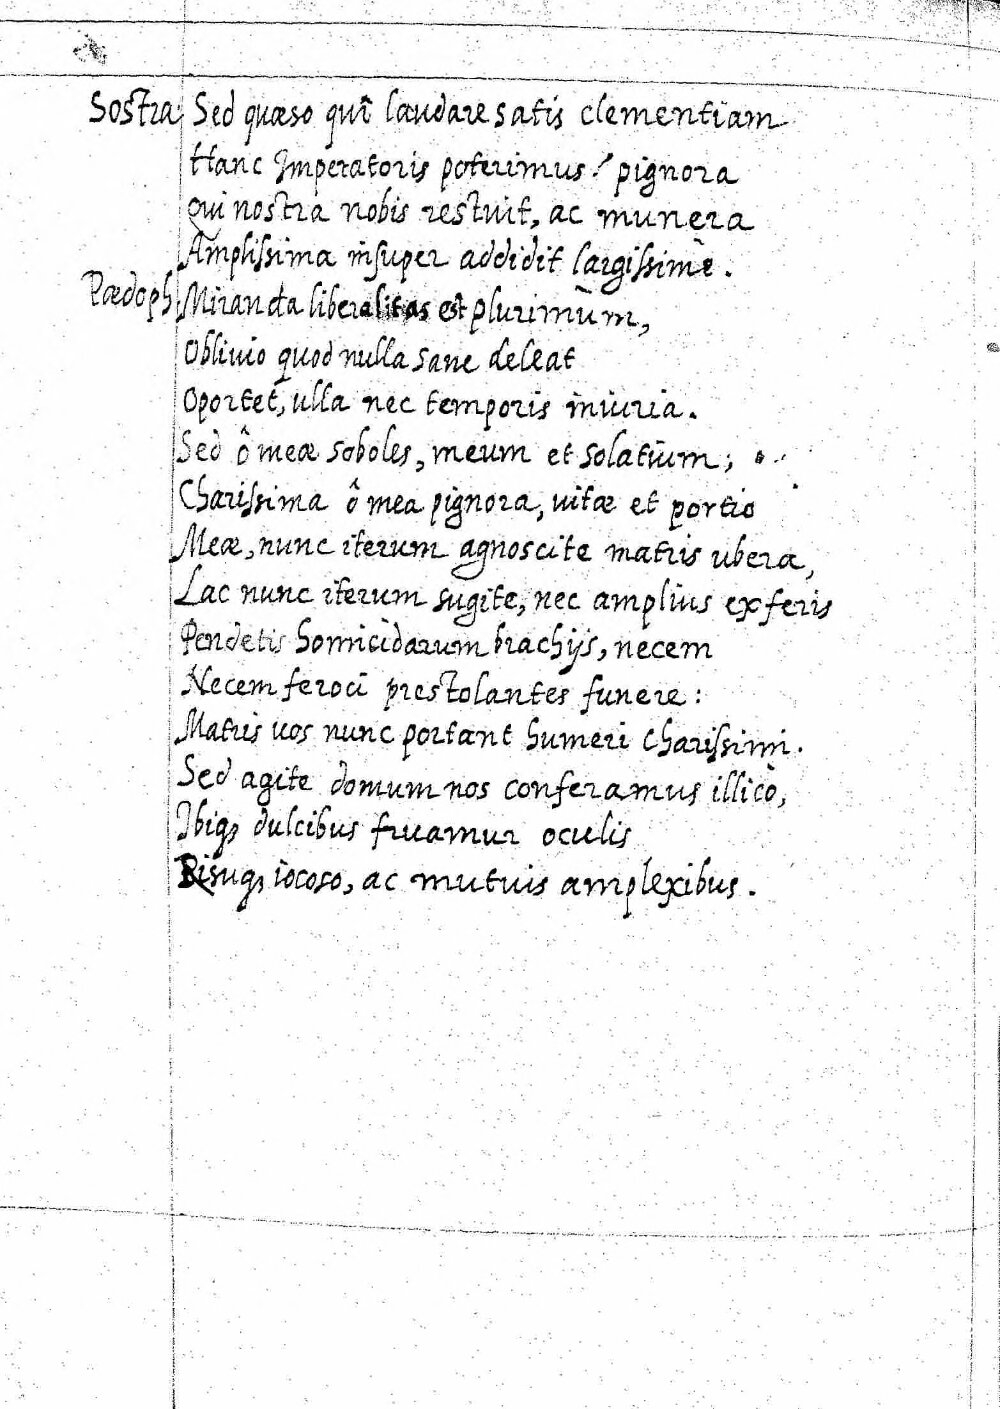 Sostra: Sed quæso quî laudare satis clementiam
Hanc Imperatoris poterimus? pignora
Qui nostra nobis restuit, ac munera
Amplissima insuper addidit largissimè.
Pædoph: Miranda liberalitas est plurimùm,
Obliuio quod nulla sane deleat
Oportet, ulla nec temporis iniuria.
Sed ô meæ soboles, meum et solatium;
Charissima ô mea pignora, uitæ et portio
Meæ, nunc iterum agnoscite matris ubera,
Lac nunc iterum sugite, nec amplius ex feris
Pendetis homicidarum brachijs, necem
Necem feroci prestolantes funere:
Matris uos nunc portant humeri charissimi.
Sed agite domum nos conferamus illicò,
Ibiq, dulcibus fruamur oculis
Risuq, iocoso, ac mutuis amplexibus.